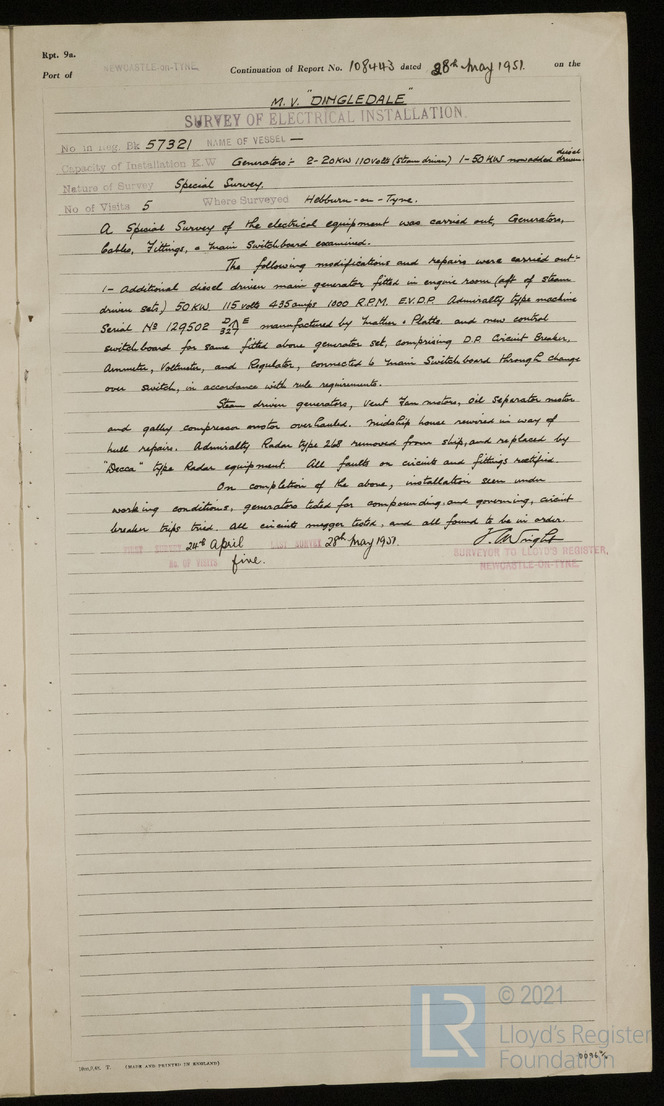 Rpt. 9a.
Port of NEWCASTLE-on-TYNE. Continuation of Report No. 108443 dated 28th May 1951. on the
M.V. "DINGLEDALE"
SURVEY OF ELECTRICAL INSTALLATION.
No in Reg. Bk 57321 NAME OF VESSEL —
Capacity of Installation K.W Generators:- 2-20KW 110 volts (steam driven) 1-50 KW now added diesel driven.
Nature of Survey Special Survey.
No of Visits 5 Where Surveyed Hebburn-on-Tyne.
A Special Survey of the electrical equipment was carried out, Generators,
Cables, Fittings, & Main Switchboard examined.
The following modifications and repairs were carried out:-
1- Additional diesel driven main generator fitted in engine room (aft of steam
driven sets) 50 KW 115 volts 435 amps 1000 R.P.M. E.V.D.P. Admiralty type machine
Serial No 129502 manufactured by Mather & Platts. and new control
switchboard for same fitted above generator set, comprising D.P. Circuit Breaker,
Ammeter, Voltmeter, and Regulator, connected to Main Switchboard through change
over switch, in accordance with rule requirements.
Steam driven generators, vent fan motors, oil separator motor
and galley compressor motor overhauled. Midship house rewired in way of
hull repairs. Admiralty Radar type 268 removed from ship, and replaced by
"Decca" type Radar equipment. All faults on circuits and fittings rectified.
On completion of the above, installation seen under
working conditions, generators tested for compounding and governing, circuit
breaker trips tried. All circuits megger tested, and all found to be in order.
FIRST SURVEY 24th April LAST SURVEY 28th May 1951.
No. OF VISITS five.
J. Wright
SURVEYOR TO LLOYD'S REGISTER,
NEWCASTLE-ON-TYNE.
(MADE AND PRINTED IN ENGLAND)
LR
© 2021
Lloyd's Register
Foundation